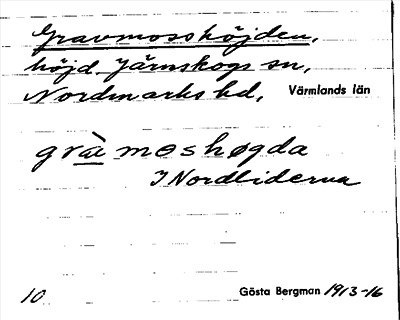 Gravmosshöjden,
höjd, Järnskogs sn,
Nordmarks hd, Värmlands län
gràvmoshøgda
I Nordliderna
10 Gösta Bergman 1913-16